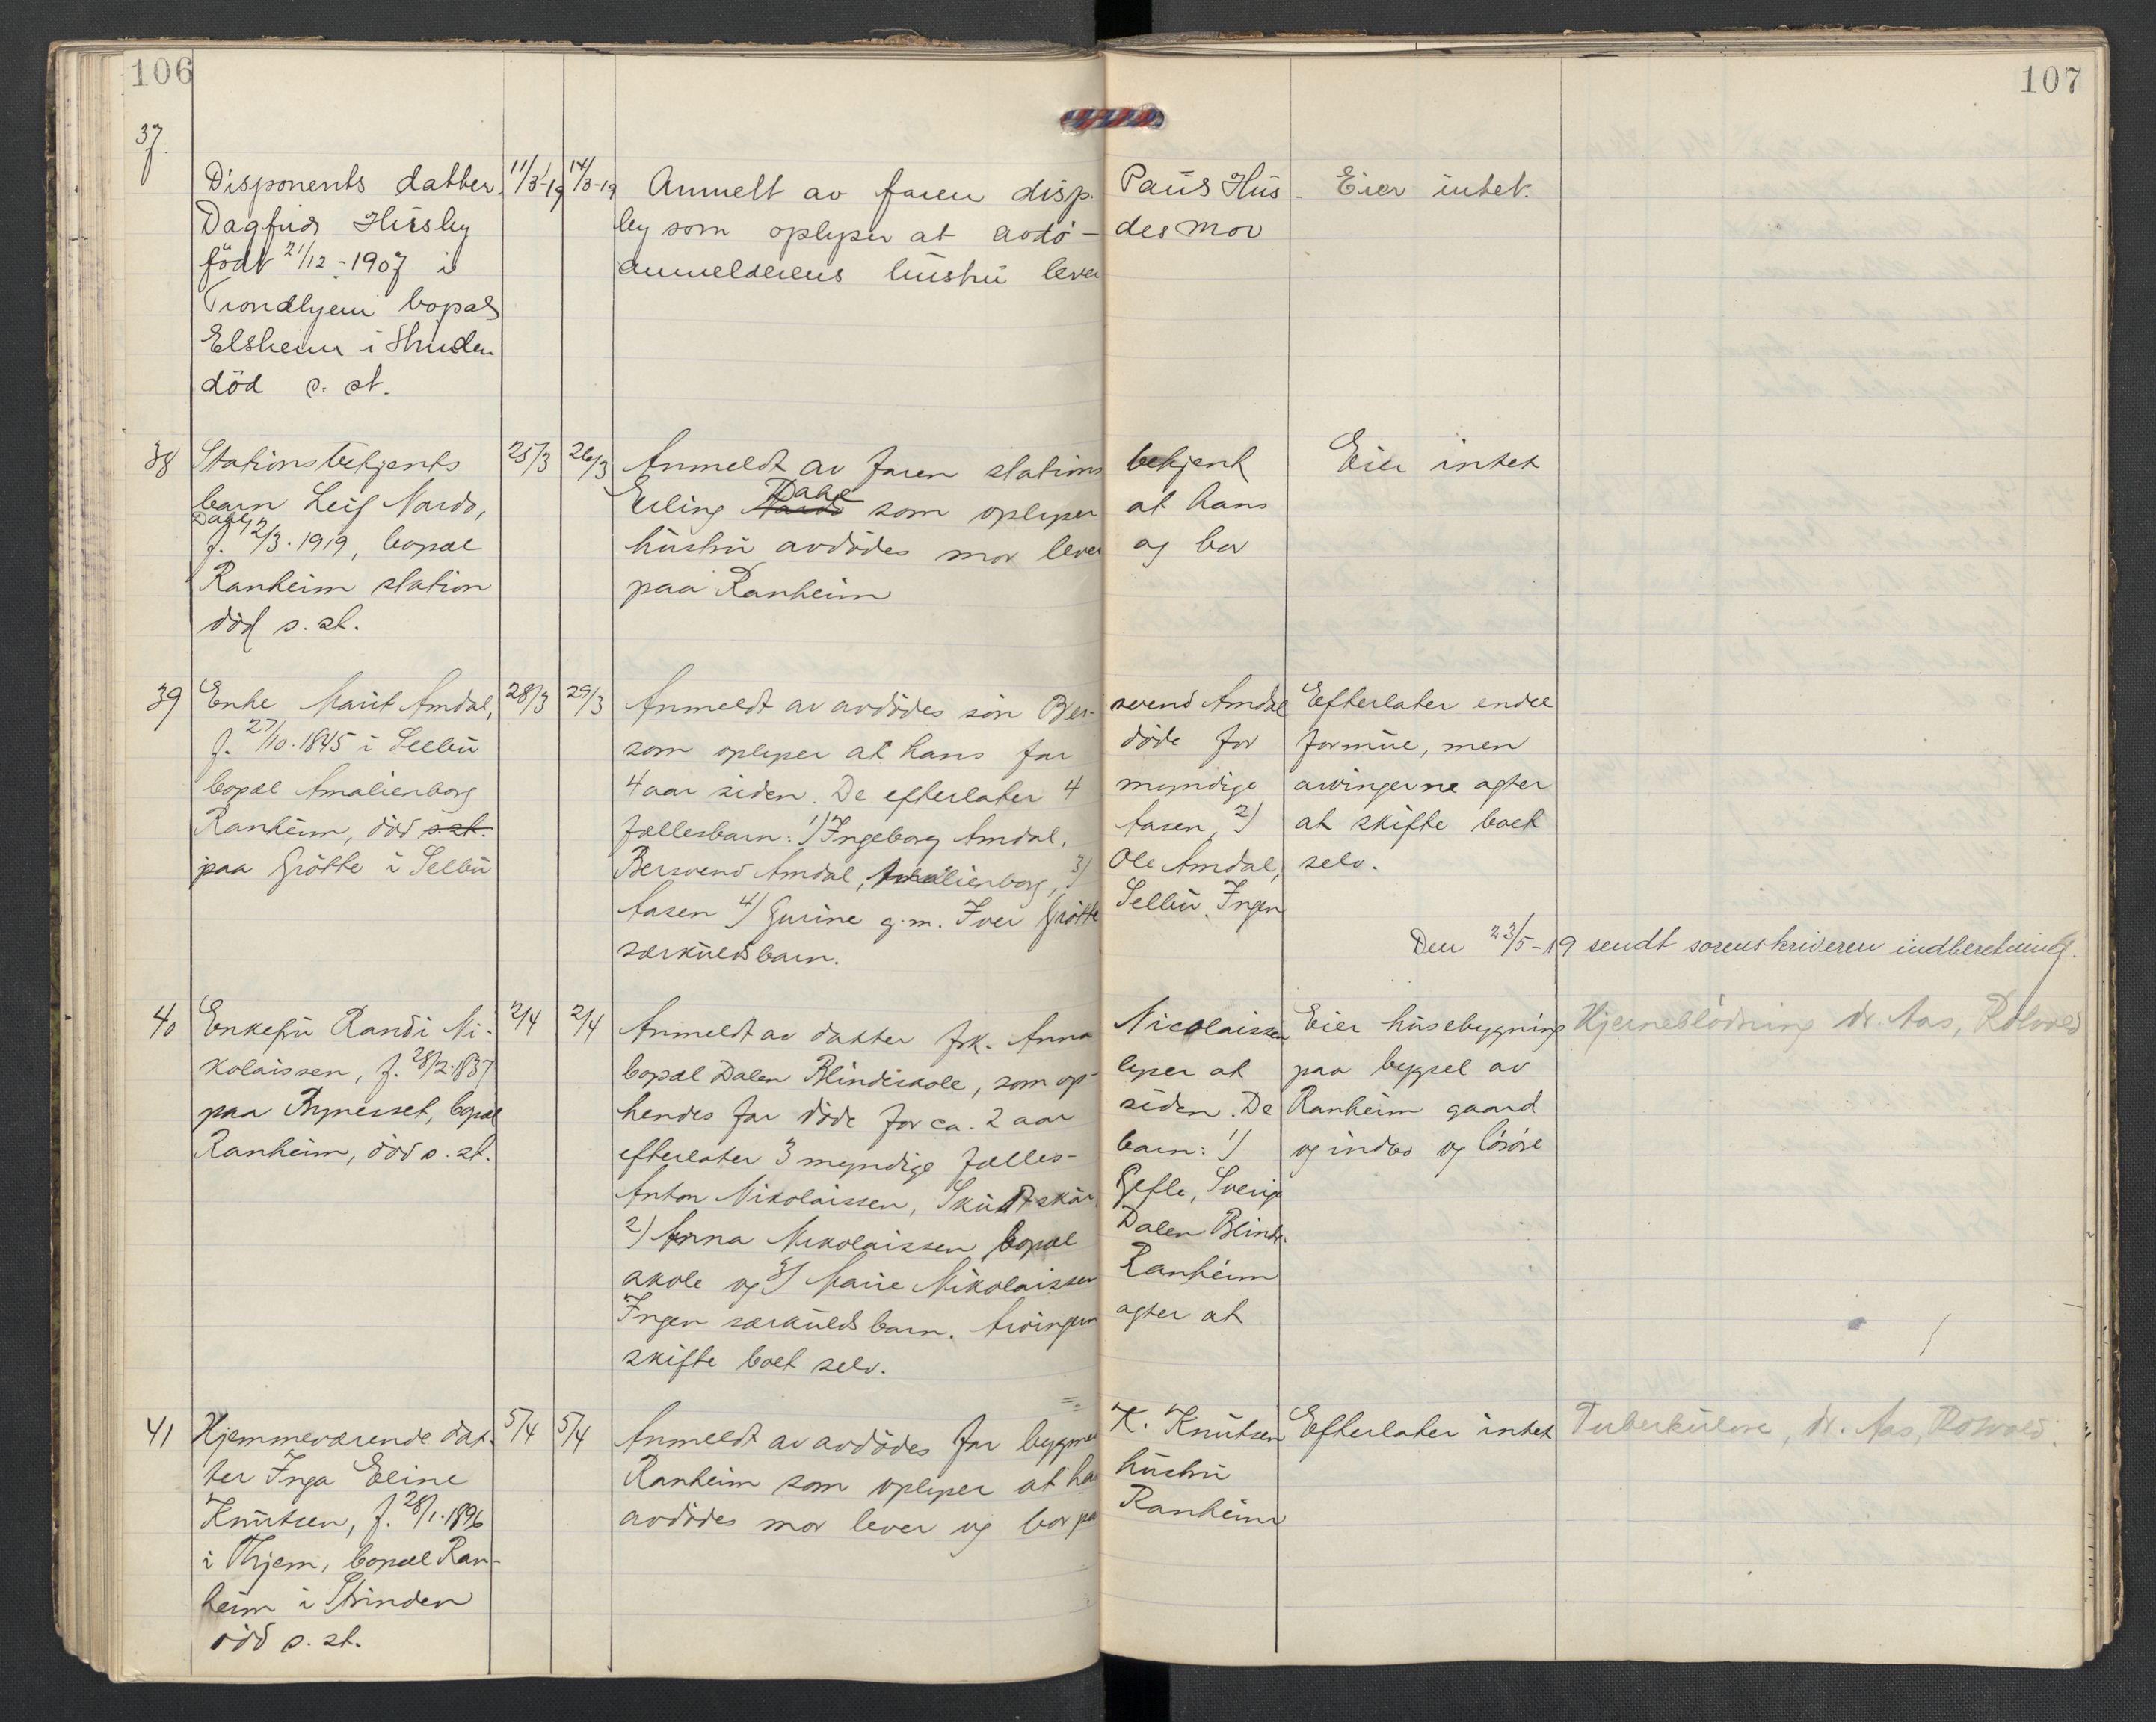 106
107
37.
Disponents datter
Dagfrid Husby
født 21/12-1907 i
Trondhjem bopæl
Elsheim i Strinden
död s. st.
11/3-19
14/3-19
Anmelt av faren disp. Paus Hus-
by som oplyser at avdö- des mor
anmelderens hustru lever
Eier intet.
38
Stationsbetjents
barn Leif Nardo,
Dahl
f. 12/3. 1919, bopæl
Ranheim station
död s. st.
25/3
26/3
Anmeldt av faren stations betjent
Erling Nardo Dahl som oplyser at hans
hustru avdödes mor lever og bor
paa Ranheim
Eier intet
39
Enke Marit Amdal,
f. 27/10. 1845 i Selbu
bopæl Amalienborg
Ranheim, död s. st.
paa Grötte i Selbu
28/3
29/3
Anmeldt av avdödes sön Ber- svend Amdal
som oplyser at hans far döde for
4 aar siden. De efterlater 4 myndige
fællesbarn: 1) Ingeborg Amdal, Aasen, 2)
Bersvend Amdal, Amalienborg, 3) Ole Amdal,
Aasen 4) Gurine g. m. Iver Grötte Selbu. Ingen
særkuldsbarn.
Efterlater endel
formue, men
arvingerne agter
at skifte boet
selv.
Den 23/5-19 sendt sorenskriveren indberetning.
40
Enkefru Randi Ni-
kolaissen, f. 28/2. 1837
paa Bynesset, bopæl
Ranheim, död s. st.
2/4
2/4
Anmeldt av datter frk. Anna Nicolaissen
bopæl Dalen Blindeskole, som op- lyser at
hendes far döde for ca. 2 aar siden. De
efterlater 3 myndige fælles- barn: 1)
Anton Nikolaissen, Skutskär, Gefle, Sverige
2) Anna Nikolaissen bopæl Dalen Blinde-
skole og 3) Marie Nikolaissen Ranheim
Ingen særkuldsbarn. Arvingern agter at
skifte boet selv.
Eier husebygning
paa bygsel av
Ranheim gaard
og indbo og lösöre
Hjerneblödning dr. Aas, Rotvold
41
Hjemmeværende dat-
ter Inga Eline
Knutsen, f. 28/1. 1896
i Thjem, bopæl Ran-
heim i Strinden
död s. st.
5/4
5/4
Anmeldt av avdödes far bygmes K. Knutsen
Ranheim som oplyser at ha hustru
avdödes mor lever og bor paa Ranheim
Efterlater intet
Tuberkulose, dr. Aas, Rotvold.